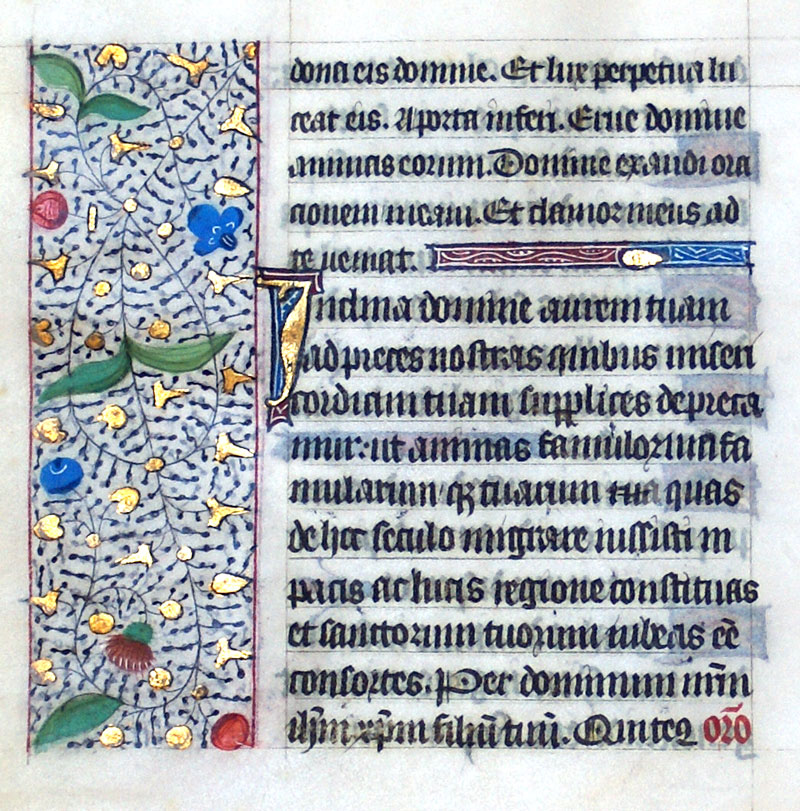 dona eis domine. Et lux perpetua lu
ceat eis. A porta inferi. Erue domine
animas eorum. Domine exaudi ora
cionem meam. Et clamor meus ad
te ueniat.
Inclina domine aurem tuam
ad preces nostras quibus miseri
cordiam tuam supplices depreca
mur: ut animas famulorum fa
mularum q̃ tuarum tua quas
de hoc seculo migrare iussisti in
pacis ac lucis regione constituas
et sanctorum tuorum iubeas eē
consortes. Per dominum nr̄m
ihm̄ xpm̄ filiū tuū. Qui tec̄ oro